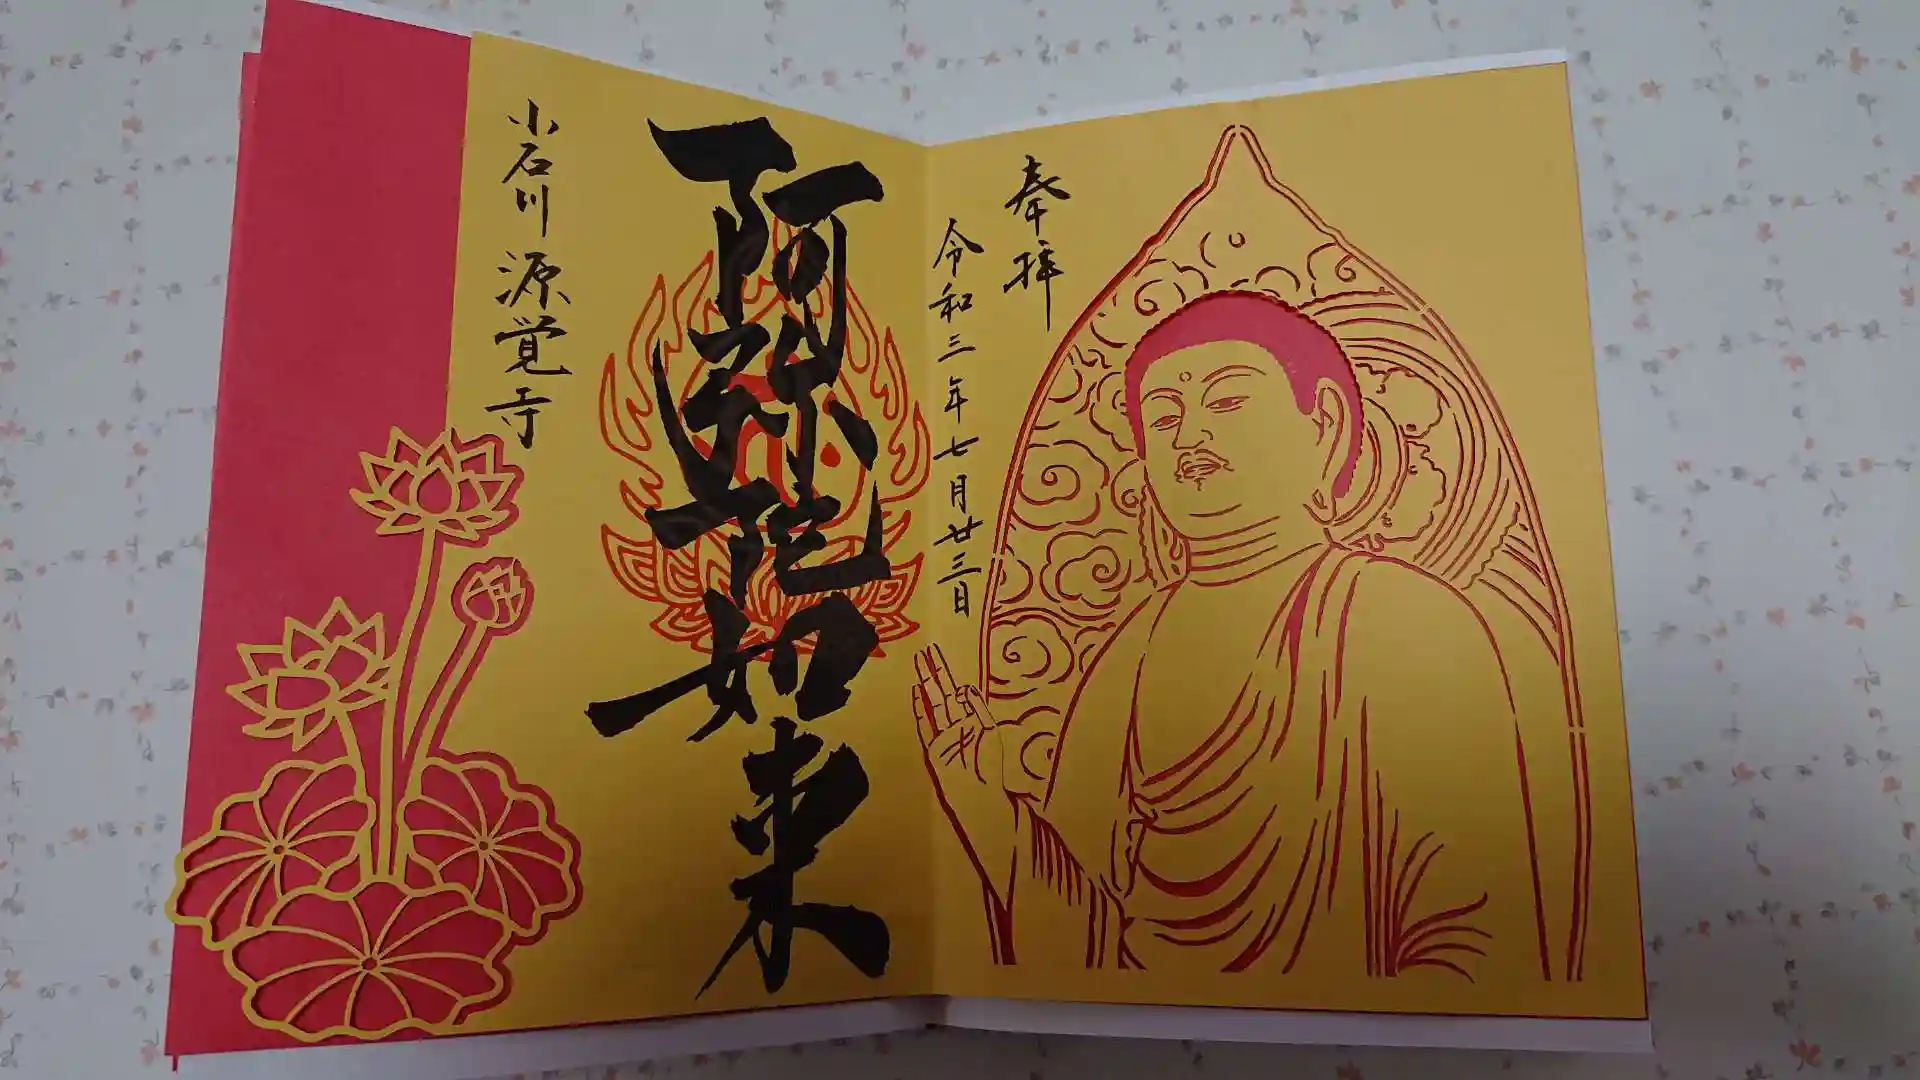 奉拝
令和三年七月廿三日
阿弥陀如来
小石川源覚寺